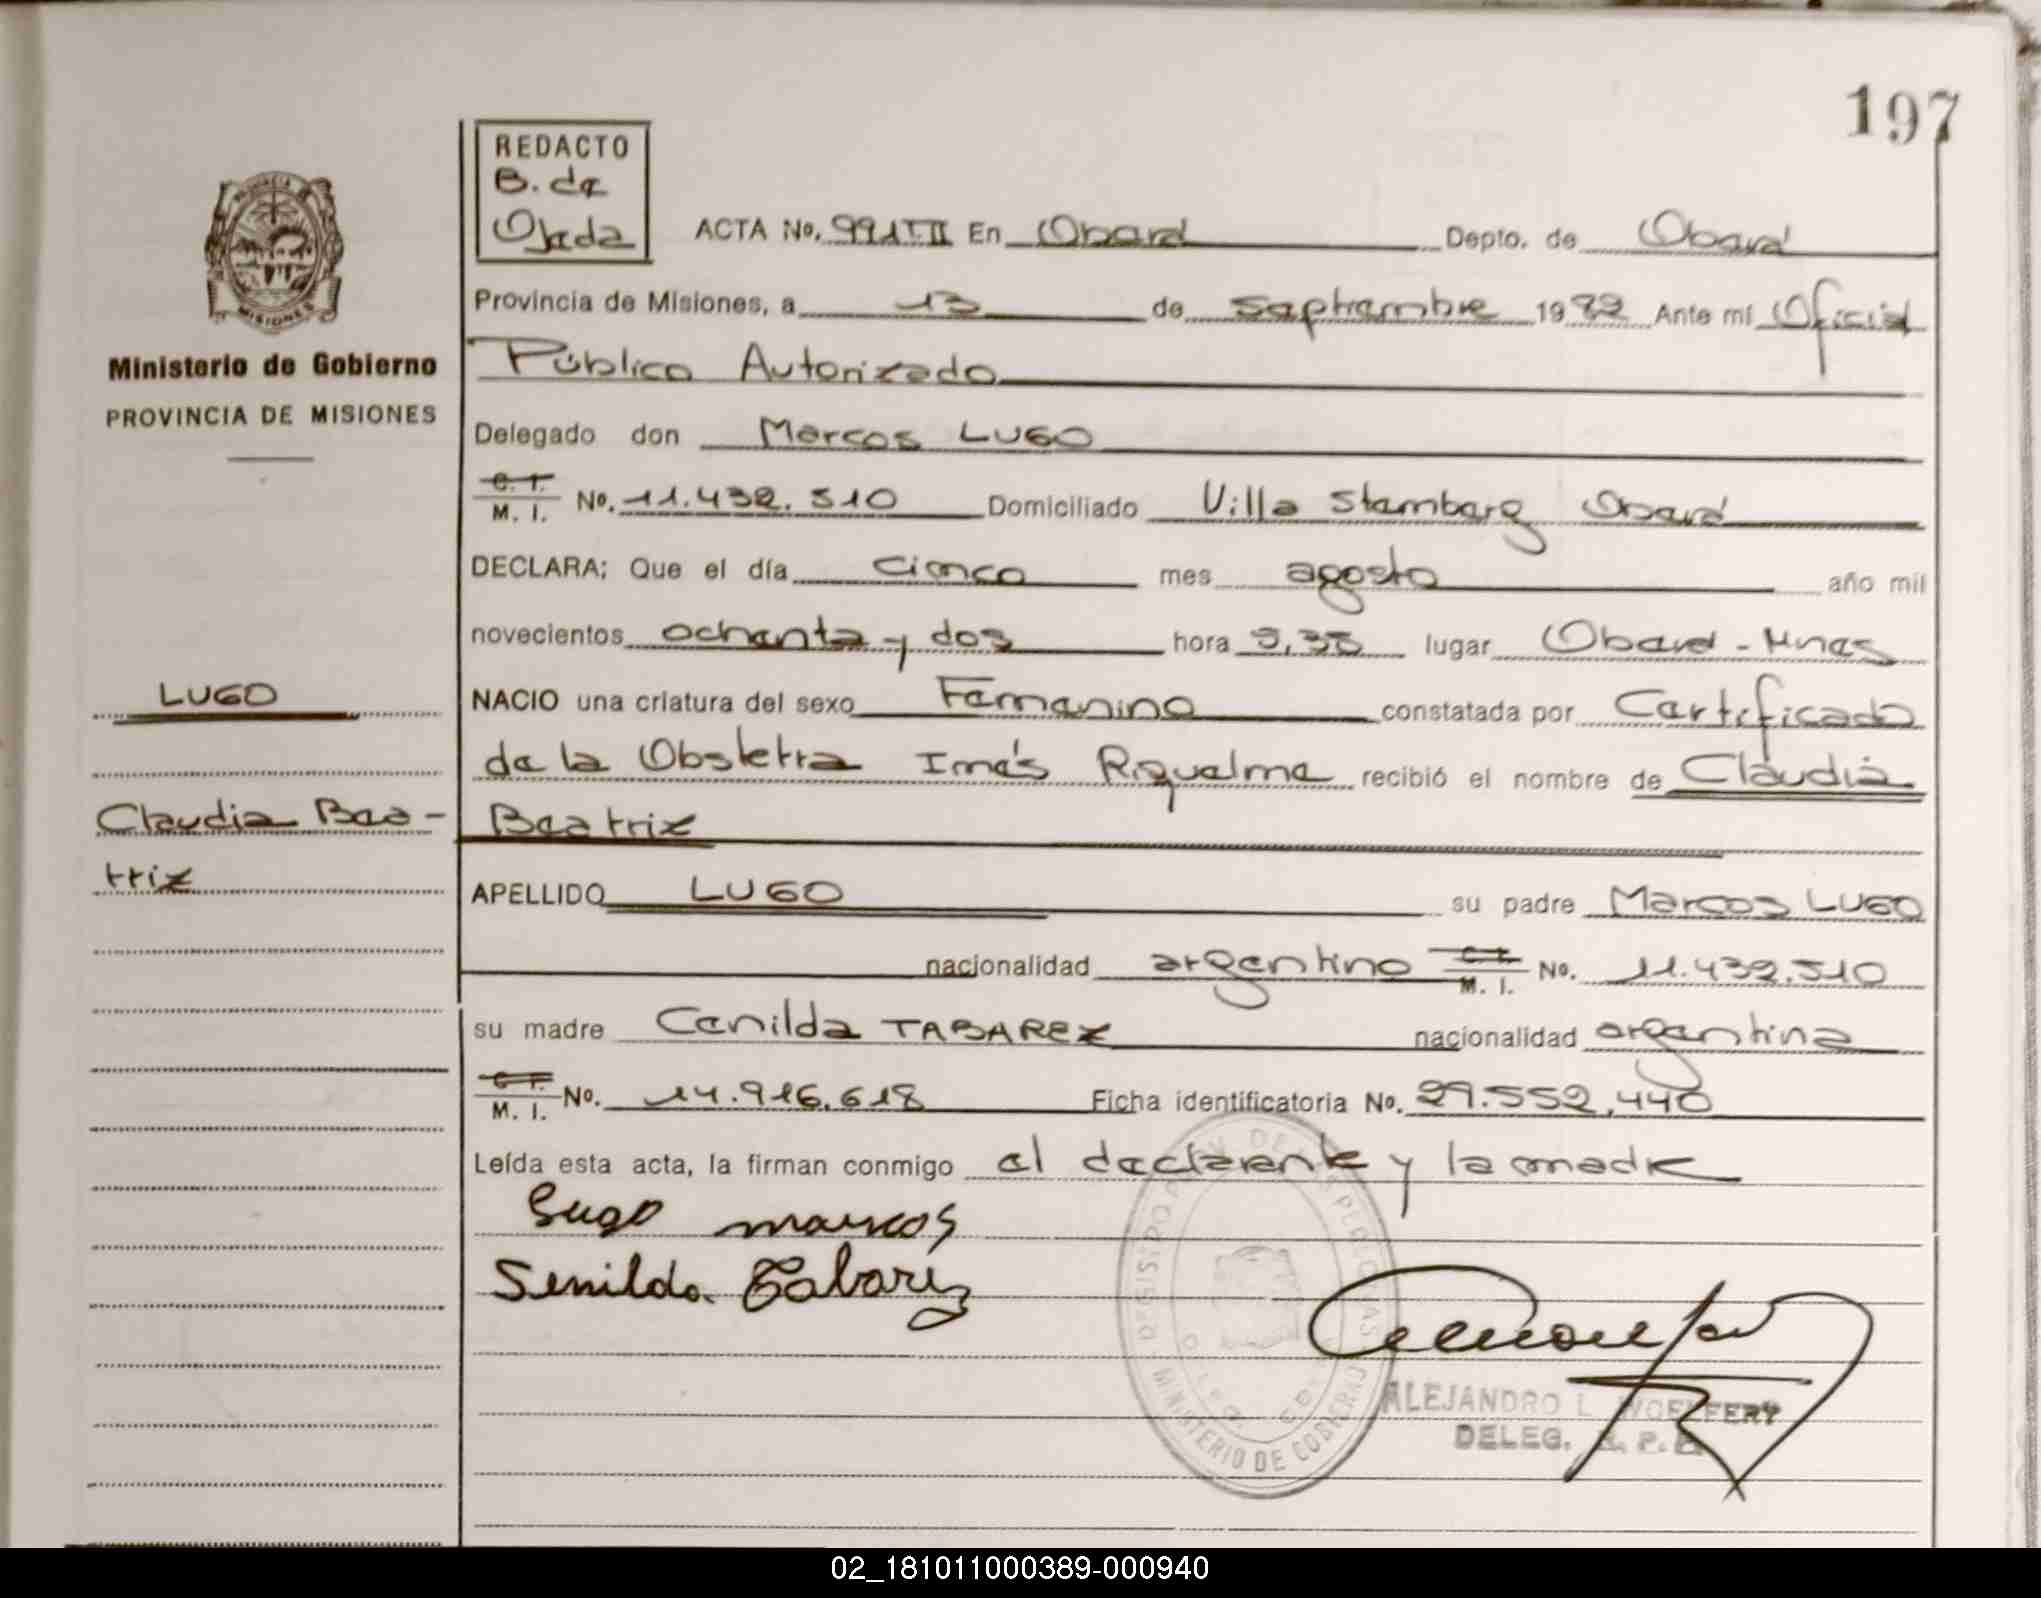 197
REDACTO
B. de
Ojeda
ACTA No. 991 T. II En Oberá Depto. de Oberá
Provincia de Misiones, a 13 de septiembre 1982 Ante mí Oficial
Público Autorizado
Delegado don Marcos LUGO
C. I. M. I. No. 11.432.510 Domiciliado Villa Stemberg Oberá
DECLARA; Que el día cinco mes agosto año mil
novecientos ochenta y dos hora lugar Oberá - Mnes
NACIO una criatura del sexo Femenino constatada por Certificado
de la Obstetra Inés Riquelme recibió el nombre de Claudia
Beatriz
APELLIDO LUGO su padre Marcos LUGO
nacionalidad argentino C. I. M. I. No. 11.432.510
su madre Cenilda TABAREZ nacionalidad argentina
C. I. M. I. No. 14.916.618 Ficha identificatoria No. 29.552.440
Leída esta acta, la firman conmigo el declarante y la madre
Lugo marcos
Senilda Tabarez
ALEJANDRO L. WOELFERT
DELEG. R. P.
MINISTERIO DE GOBIERNO
PROVINCIA MISIONES
Ministerio de Gobierno
PROVINCIA DE MISIONES
LUGO
Claudia Bea-
triz
02_181011000389-000940